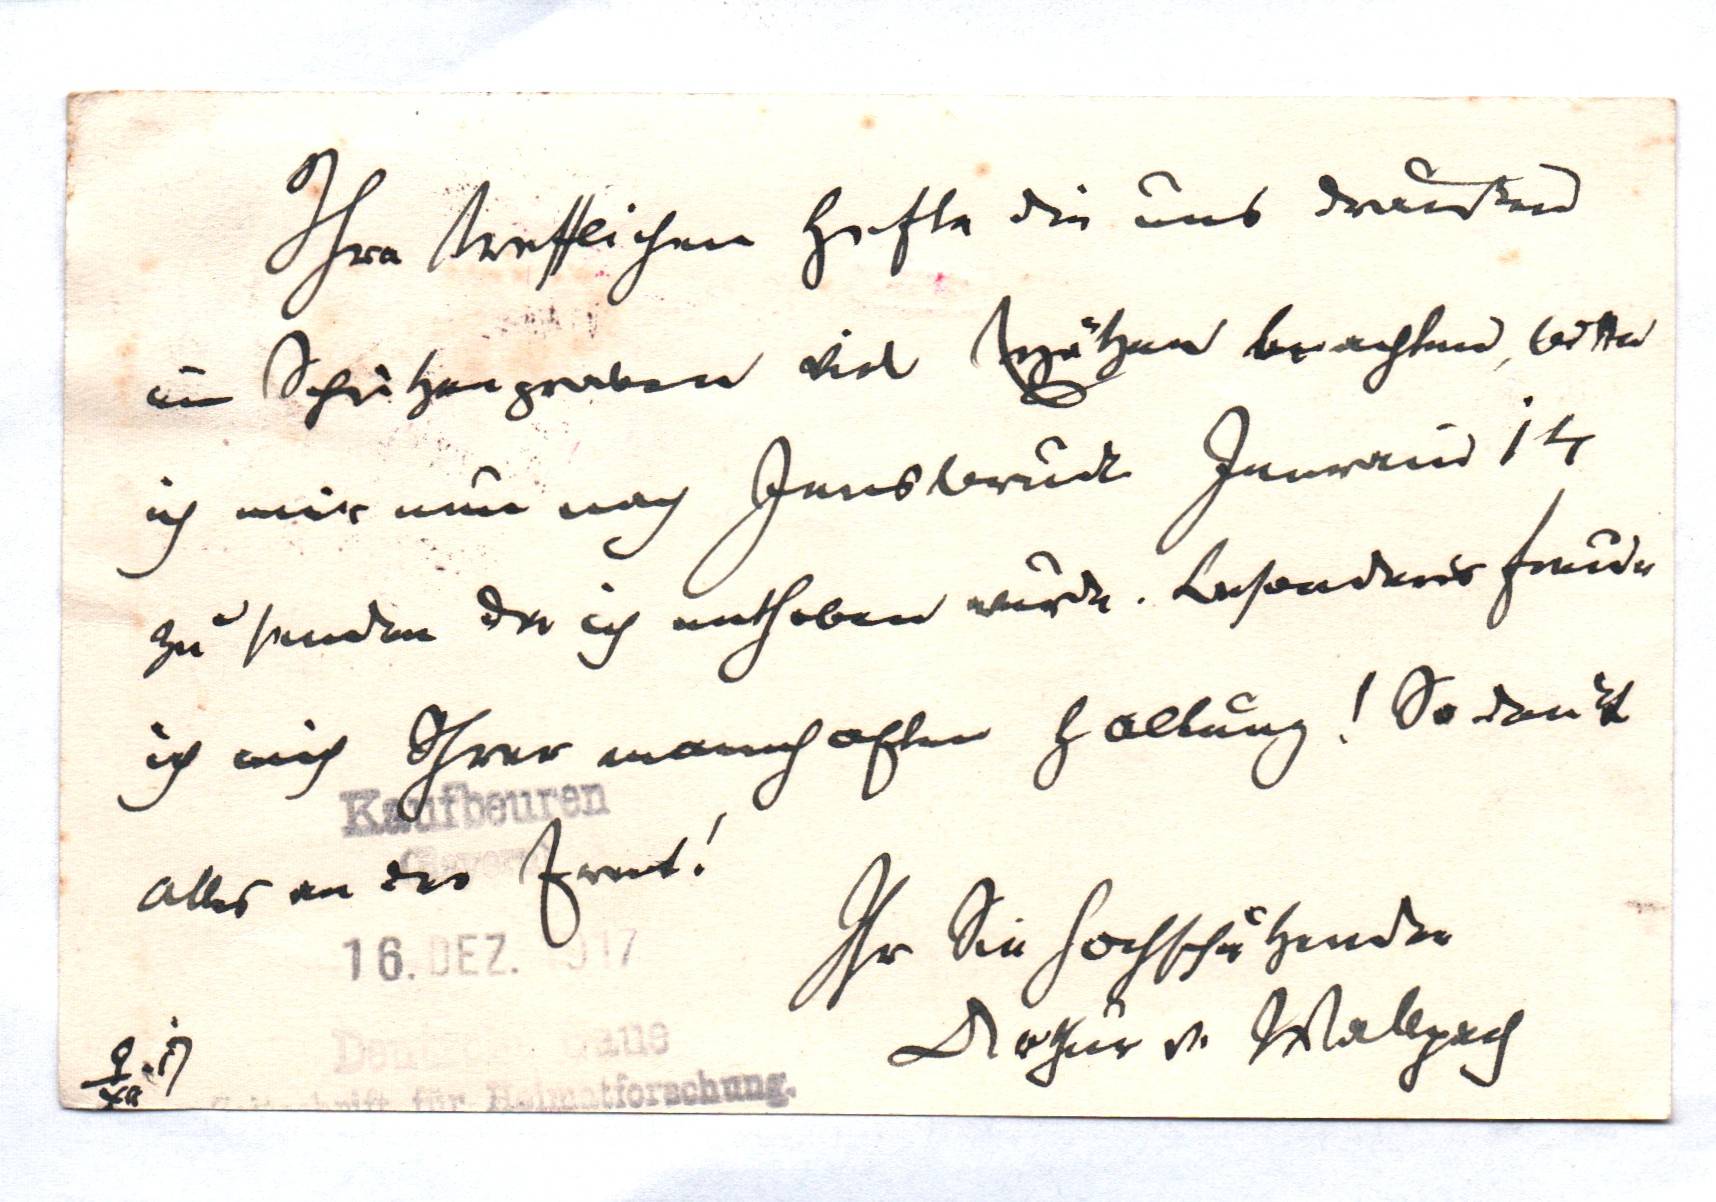 Ihre trefflichen Hefte die uns draußen
im Schützengraben viel Ergötzen brachten, bitte
ich mir nun nach Innsbruck Innrain 14
zu senden da ich enthoben wurde. Besonders freute
ich mich Ihrer mannhaften Haltung! So denkt
alles an der Front!
Ihr Sie hochschätzender
Arthur v. Wallpach
9/XII.17
Kaufbeuren
(Bayern)
16. DEZ. 1917
Deutsche Gaue
Zeitschrift für Heimatforschung.